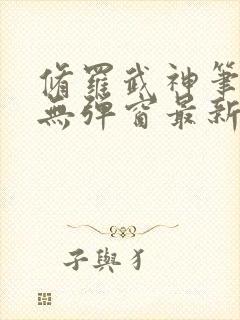 脩羅武神筆
無彈窗最新
子與犭